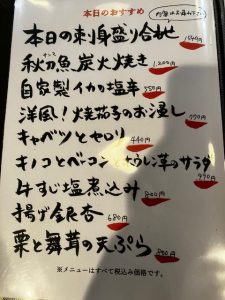 本日のおすすめ
本日の刺身盛り合せ
秋刀魚炭火焼き 1,200円
自家製イカの塩辛 550円
洋風!焼茄子のお浸し 770円
キャベツとセロリ 440円
キノコとベーコン ホウレン草のサラダ 970円
牛すじ塩煮込み
揚げ銀杏 680円
栗と舞茸の天ぷら
※メニューはすべて税込み価格です。